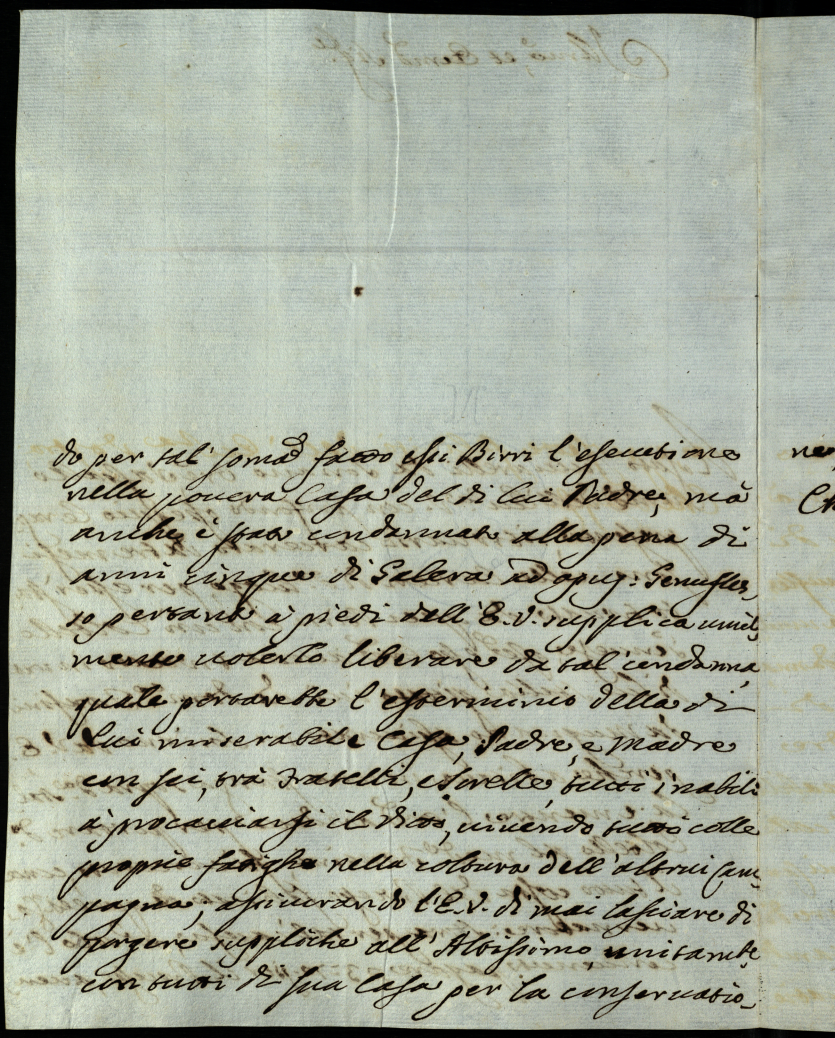 do per tal' somã fatto essi Birri l'esecutione
nella povera Casa del di lui Padre, mà
anche è stato condannato alla pena di
anni cinque di Galera ad opus: Genufles,
so pertanto à piedi dell'E.V. supplica umil,
mente volerlo liberare da tal condanna,
quale portarebbe l'esterminio della di
lui miserabile Casa, Padre, e Madre
con sei, trà Fratelli, e Sorelle, tutti inabili
à procacciarsi il vitto, vivendo tutti colle
proprie fatighe nella coltura dell'altrui Cam,
pagna; assicurando l'E.V. di mai lasciare di
porgere suppliche all'Altissimo, unitamte
con tutti di sua Casa per la conservatio,
ne